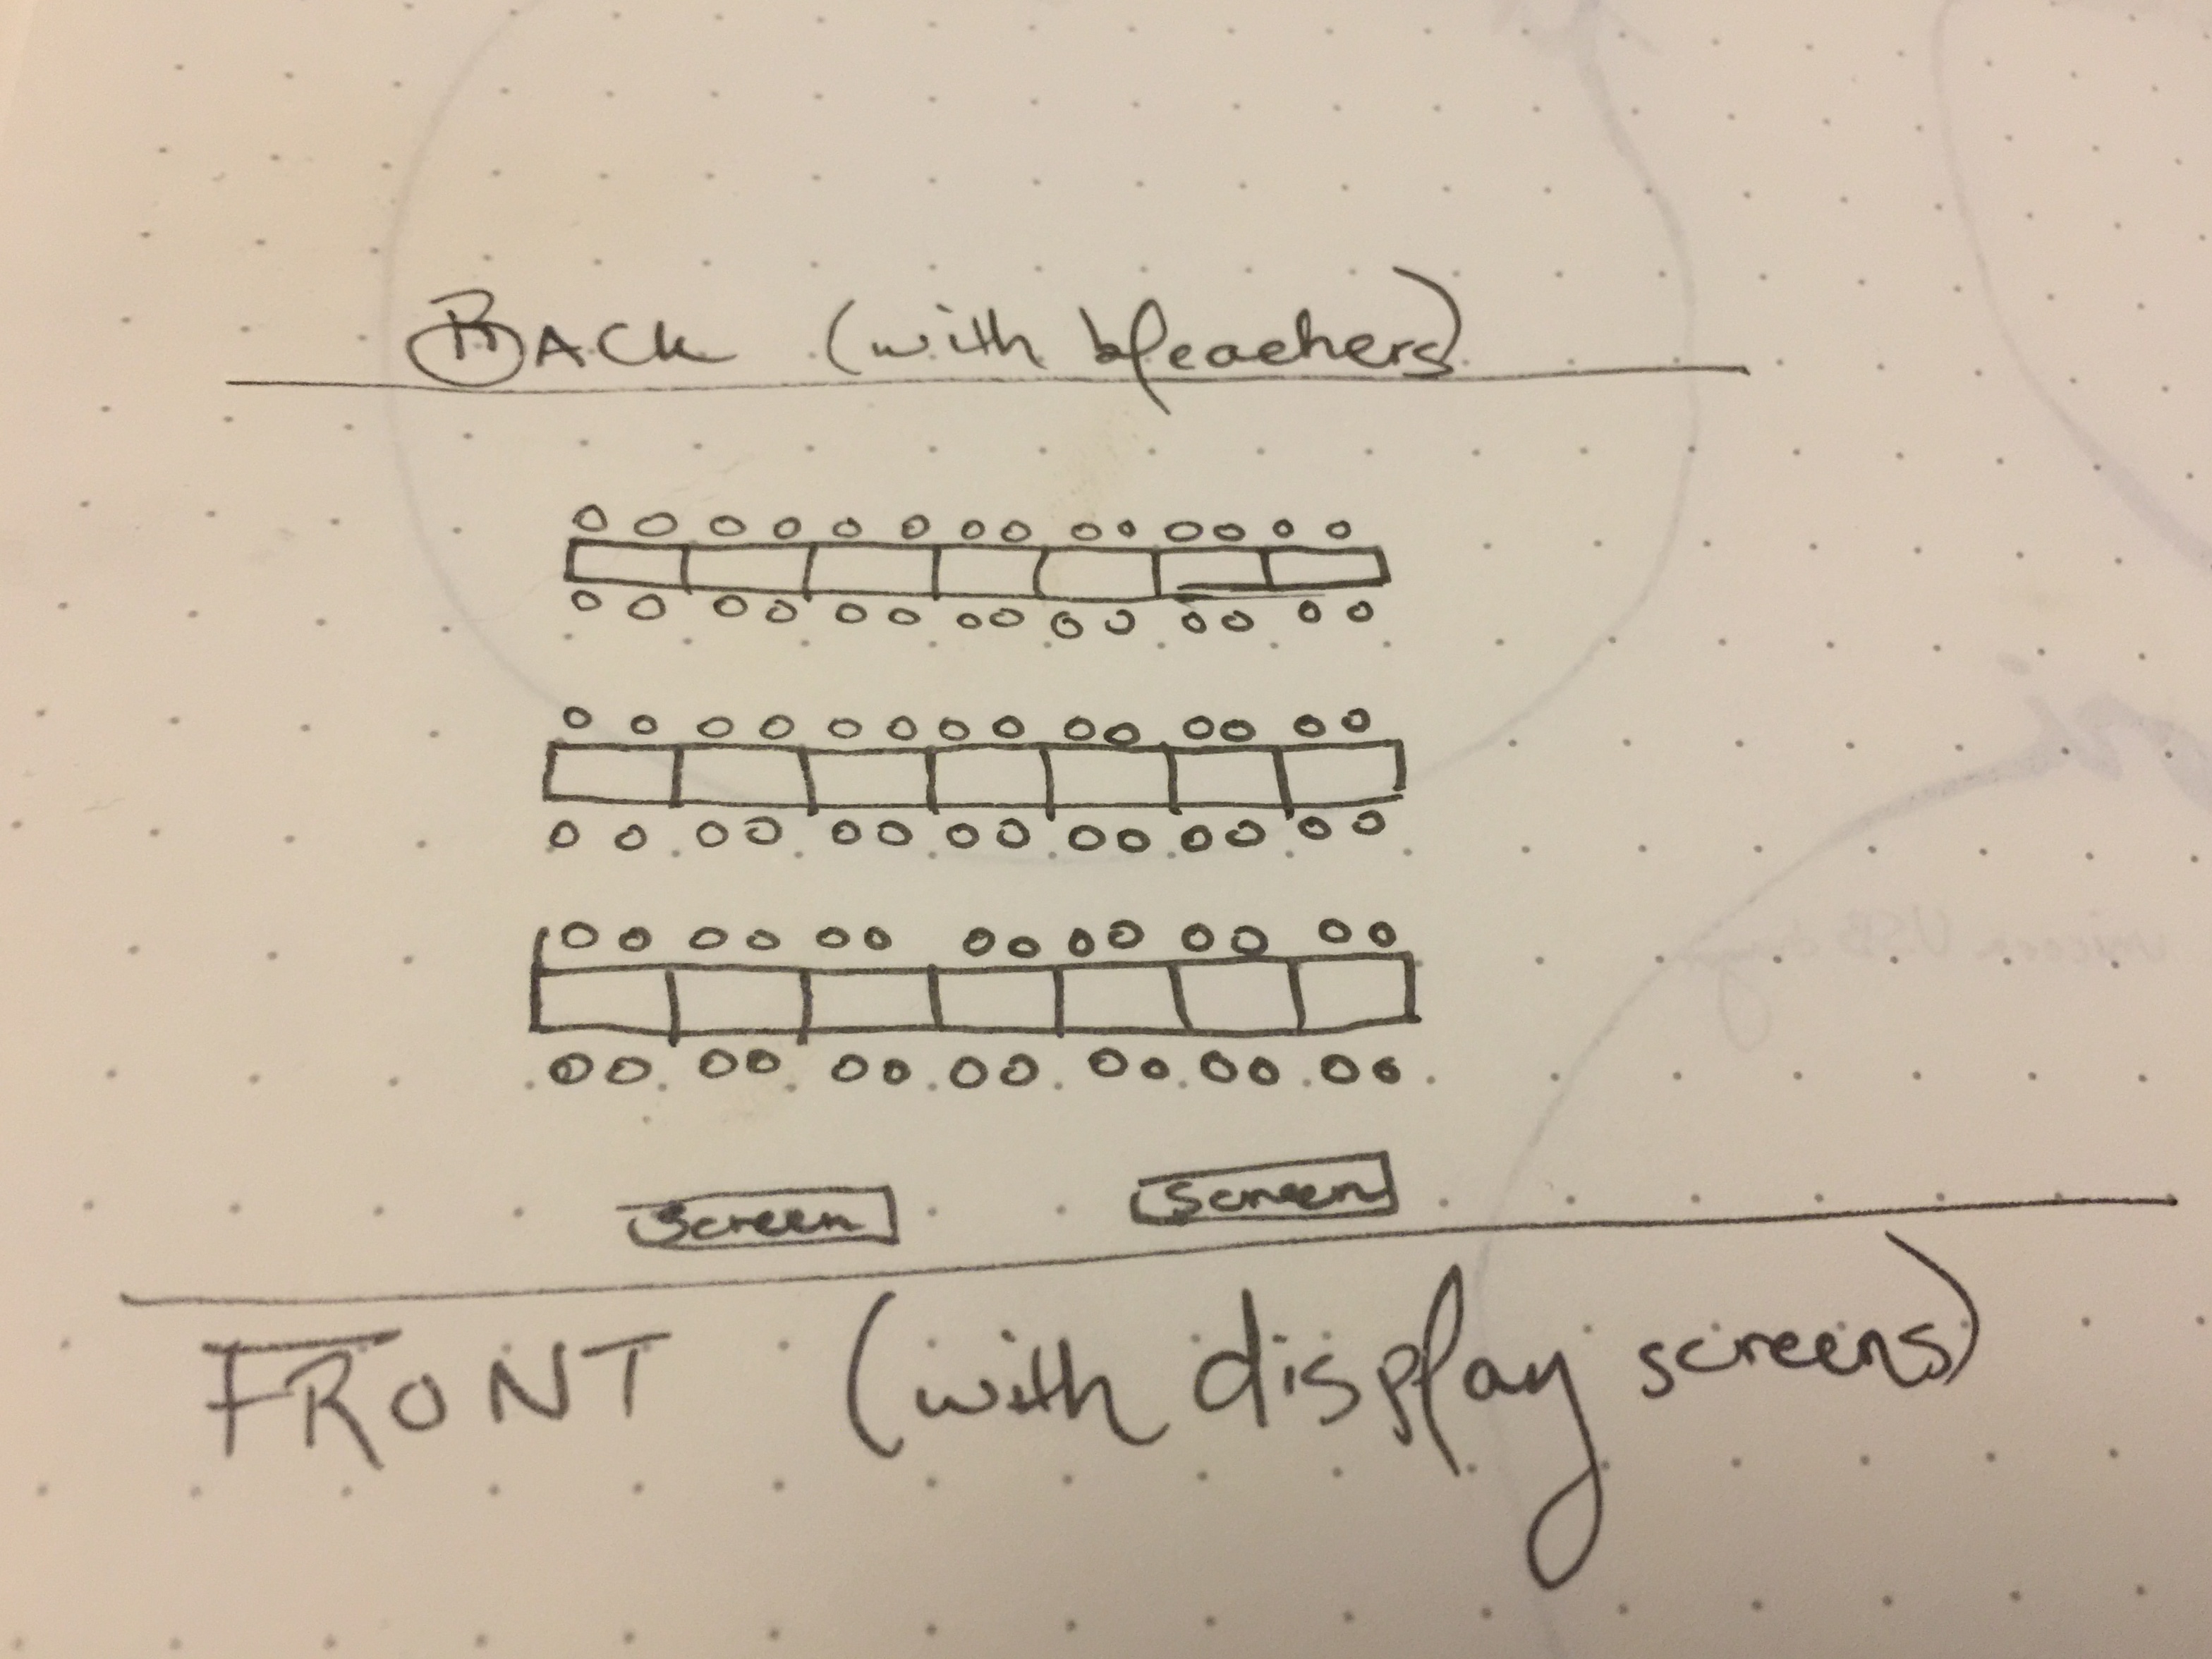 BACK (with bleachers)
screen screen
FRONT (with display screens)